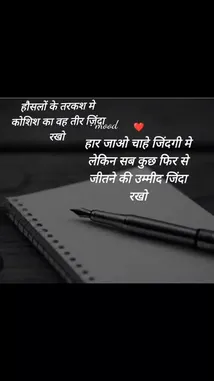 हौसलों के तरकश मे
कोशिश का वह तीर ज़िंदा
रखो
mood ❤️
हार जाओ चाहे जिंदगी मे
लेकिन सब कुछ फिर से
जीतने की उम्मीद जिंदा
रखो